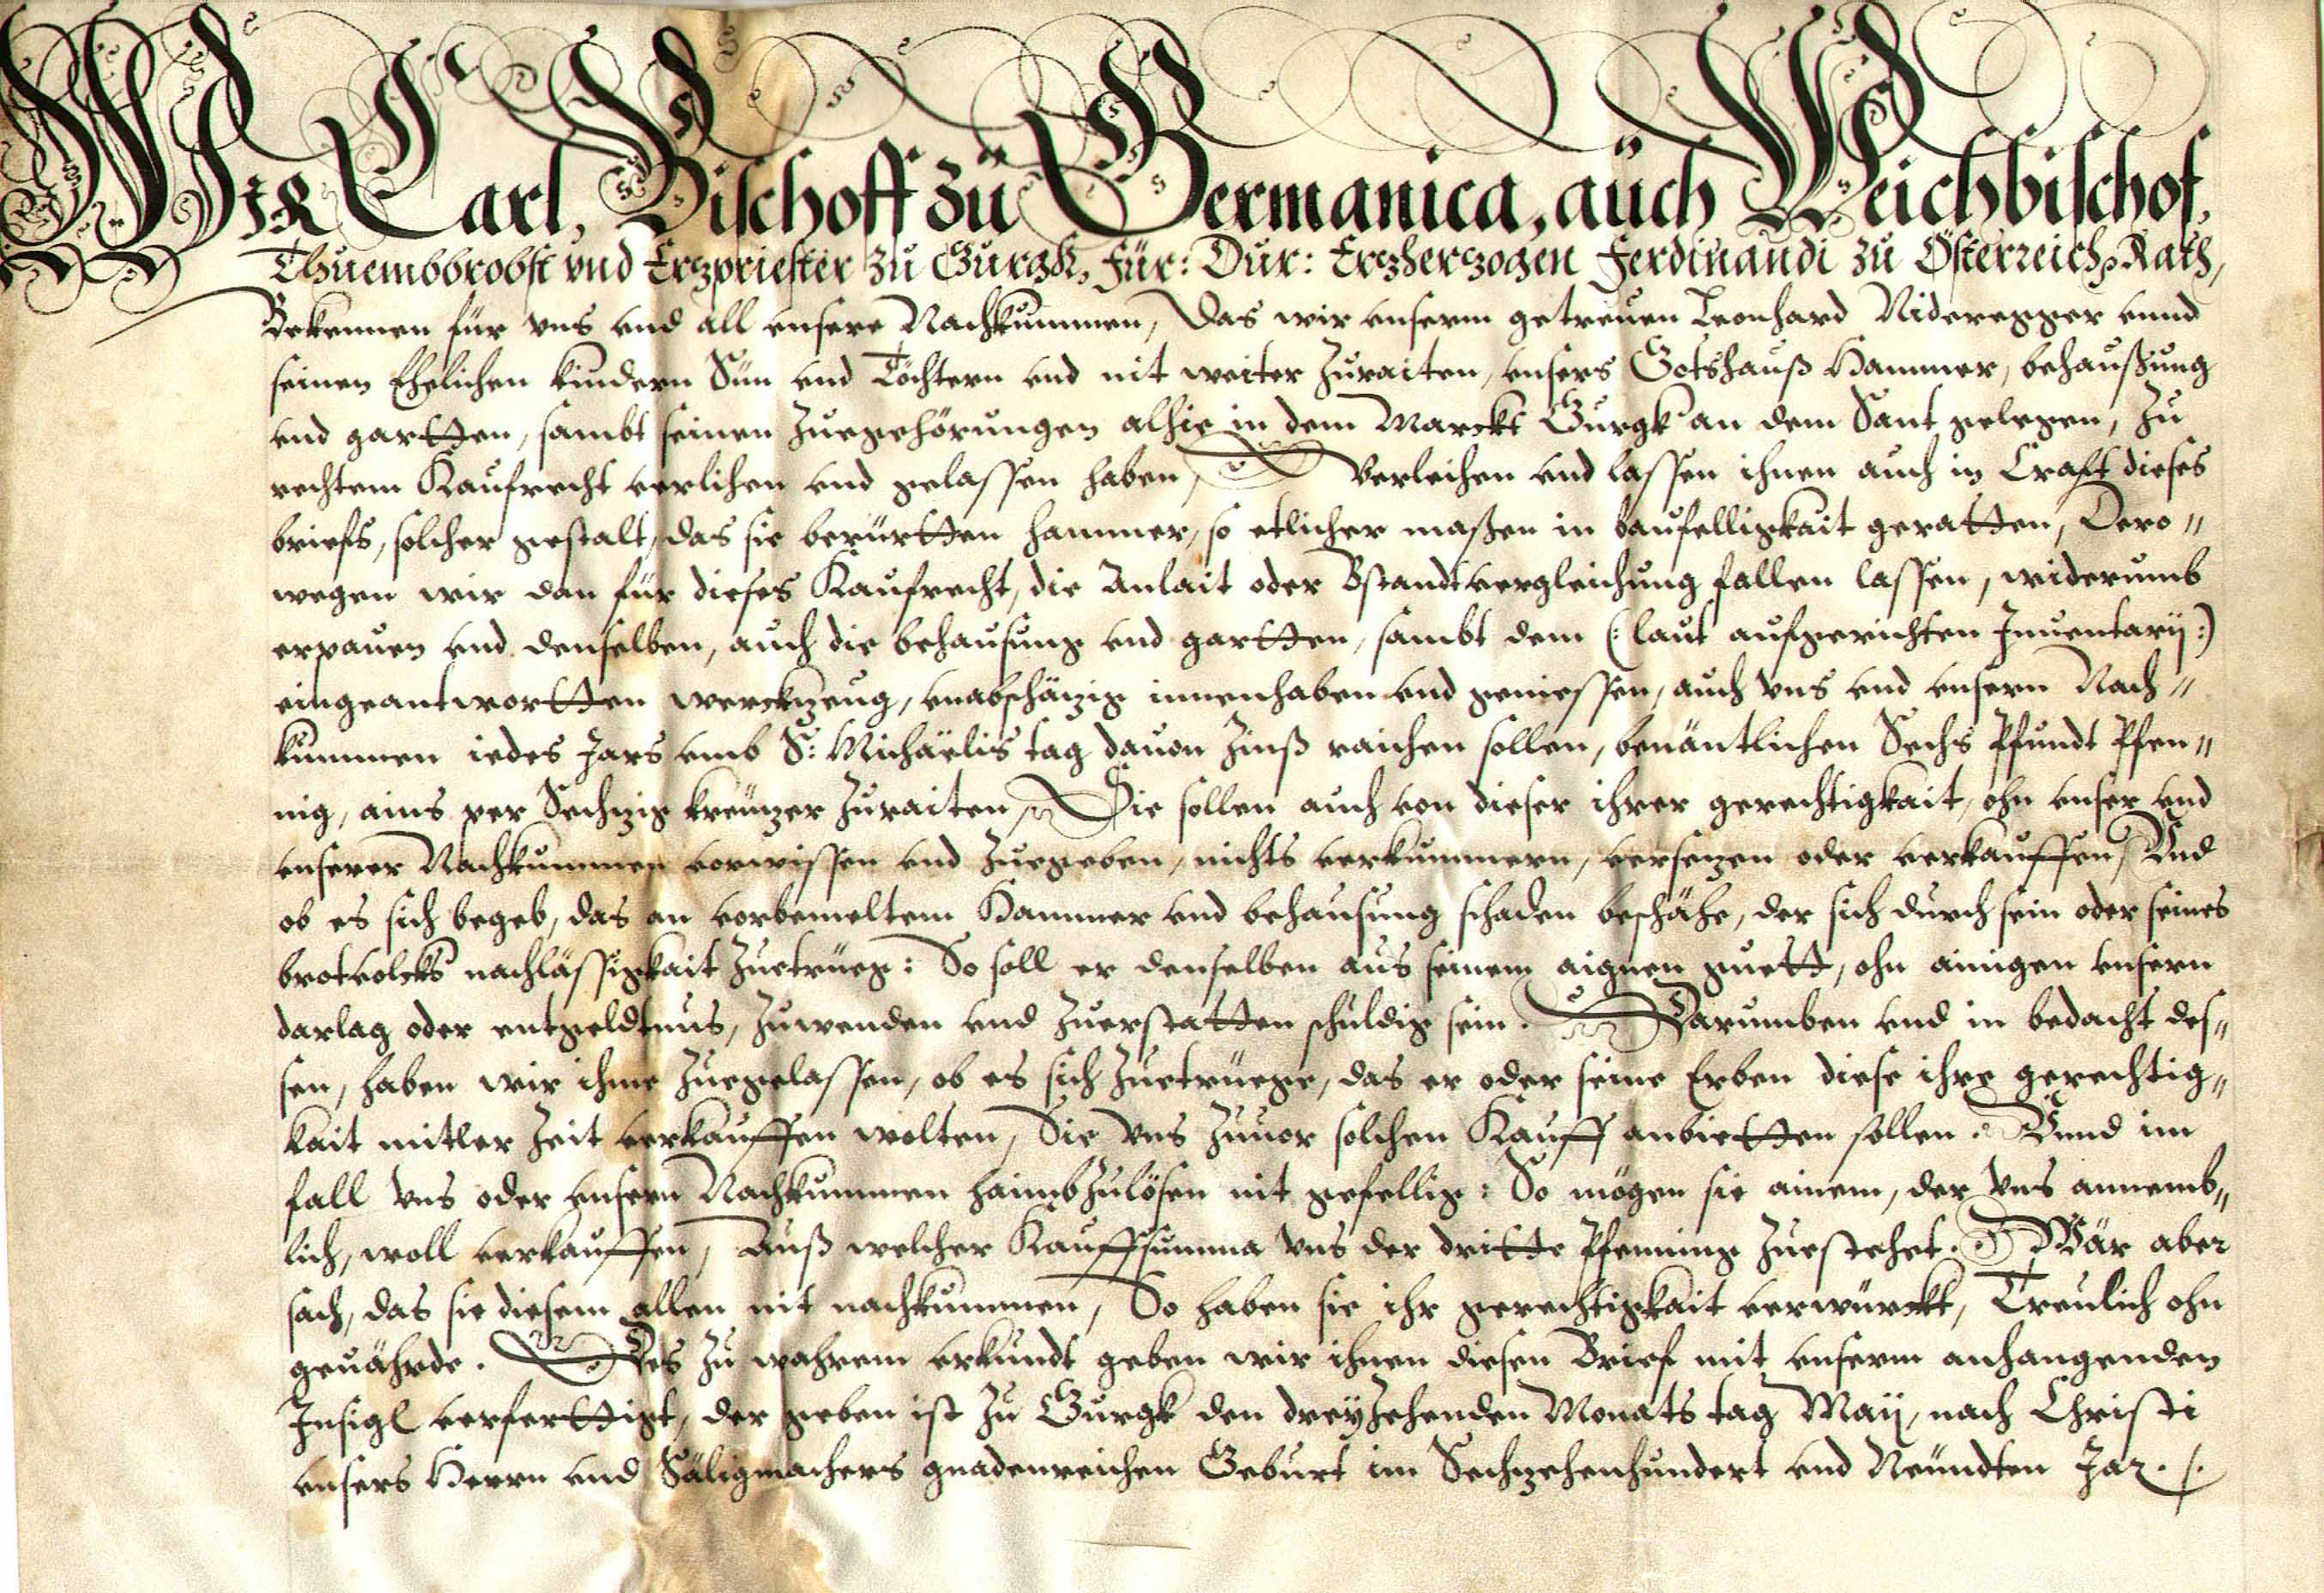 WIR Carl, Bischoff zü Germanica, aüch Weichbischof,
Thuembbrobst vnd Erczpriester zu Gürgk, Für: Dür: Erczherczogen Ferdinandi zu Österreich p. Rath,
Bekennen für vns vnd all vnsere Nachkummen, Das wir vnserm getreuen Leonhard Nideregger vnnd
seinen Ehelichen kindern Sün vnd Töchtern vnd nit weiter zuraiten, vnsers Gotshauß Hammer, behaußung
vnd gartten, sambt seinen zuegehörungen alhie in dem Marckt Gurgk an dem Sant gelegen, zu
rechtem Kaufrecht verlihen vnd gelassen haben, Verleihen vnd lassen ihnen auch in Craft dieses
briefs, solcher gestalt, das sie berürtten hammer, so etlicher maßen in baufelligkait geratten, Dero〃
wegen wir dan für dieses Kaufrecht, die Anlait oder Bstandtvergleichung fallen lassen, widerumb
erpauen vnd denselben, auch die behausung vnd gartten, sambt dem (: laut aufgerichten Inuentarij :)
eingeantwortten werckzeug, vnabschäzig innenhaben vnd geniessen, auch vns vnd vnsern Nach〃
kummen iedes Jars vmb S: Michaëlis tag dauon zinß raichen sollen, benäntlichen Sechs Pfundt Pfen〃
nig, ains per Sechzig kreuzer zuraiten, Sie sollen auch von dieser ihrer gerechtigkait, ohn vnser vnd
vnserer Nachkummen vorwissen vnd zuegeben, nichts verkummern, versezen oder verkauffen, Vnd
ob es sich begeb, das an vorbemeltem Hammer vnd behausung schaden beschähe, der sich durch sein oder seines
brotvolcks nachlässigkait zuetrüeg: So soll er denselben aus seinem aignen guett, ohn ainigen vnsern
darlag oder entgeldtnus, zuwenden vnd zuerstatten schuldig sein. Darumben vnd in bedacht des〃
sen, haben wir ihme zuegelassen, ob es sich zuetrüege, das er oder seine Erben diese ihre gerechtig〃
kait mitler zeit verkauffen wolten, Sie vns zuuor solchen Kauff anbietten sollen. Vnnd im
fall vns oder vnsern Nachkummen haimbzulösen nit gefellig: So mögen sie ainem, der vns annemb〃
lich, woll verkauffen, Auß welcher Kauffsumma vns der dritte Pfenning zuestehet. Wär aber
sach, das sie diesem allen nit nachkummen, So haben sie ihr gerechtigkait verwürckt, Treulich ohn
geuährde. Des zu wahrem vrkundt geben wir ihnen diesen Brief mit vnserm anhangenden
Insigl verferttigt, der geben ist zu Gurgk den dreyzehenden Monats tag Maij, nach Christi
vnsers Herrn vnd Säligmachers gnadenreichen Geburt im Sechzehenhundert vnd Neündten Jar. /.